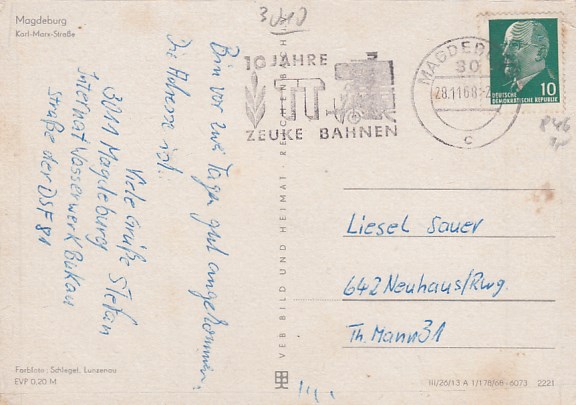 Magdeburg
Karl-Marx-Straße
Bin vor zwei Tagen gut angekommen.
Die Adresse ist:
3011 Magdeburg
Internat Wasserwerk Bukau
Straße der DSF 81
Viele Grüße Stefan
Farbfoto: Schlegel, Lunzenau
EVP 0.20 M
VEB BILD UND HEIMAT REICHENBACH
10 JAHRE
TT
ZEUKE BAHNEN
MAGDEBURG
30
28.11.68
c
10
DEUTSCHE
DEMOKRATISCHE REPUBLIK
Liesel Sauer
642 Neuhaus/Rwg.
Th. Mann 31
III/26/13 A 1/178/68 6073 2221